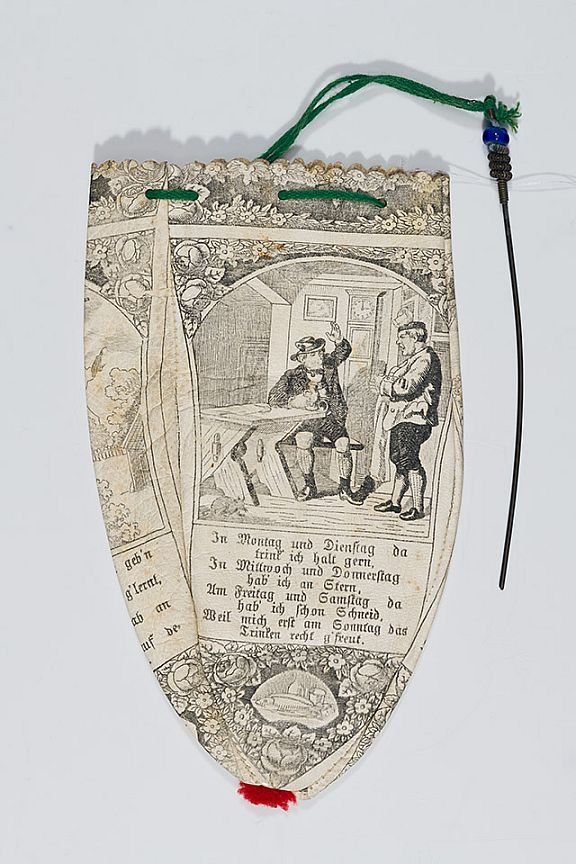 geb'n
g'lernt,
ab an
auf de
In Montag und Dienstag da
trink' ich halt gern,
In Mittwoch und Donnerstag
hab' ich an Stern,
Am Freitag und Samstag da
hab' ich schon Schneid,
Weil mich erst am Sonntag das
Trinken recht g'freut.